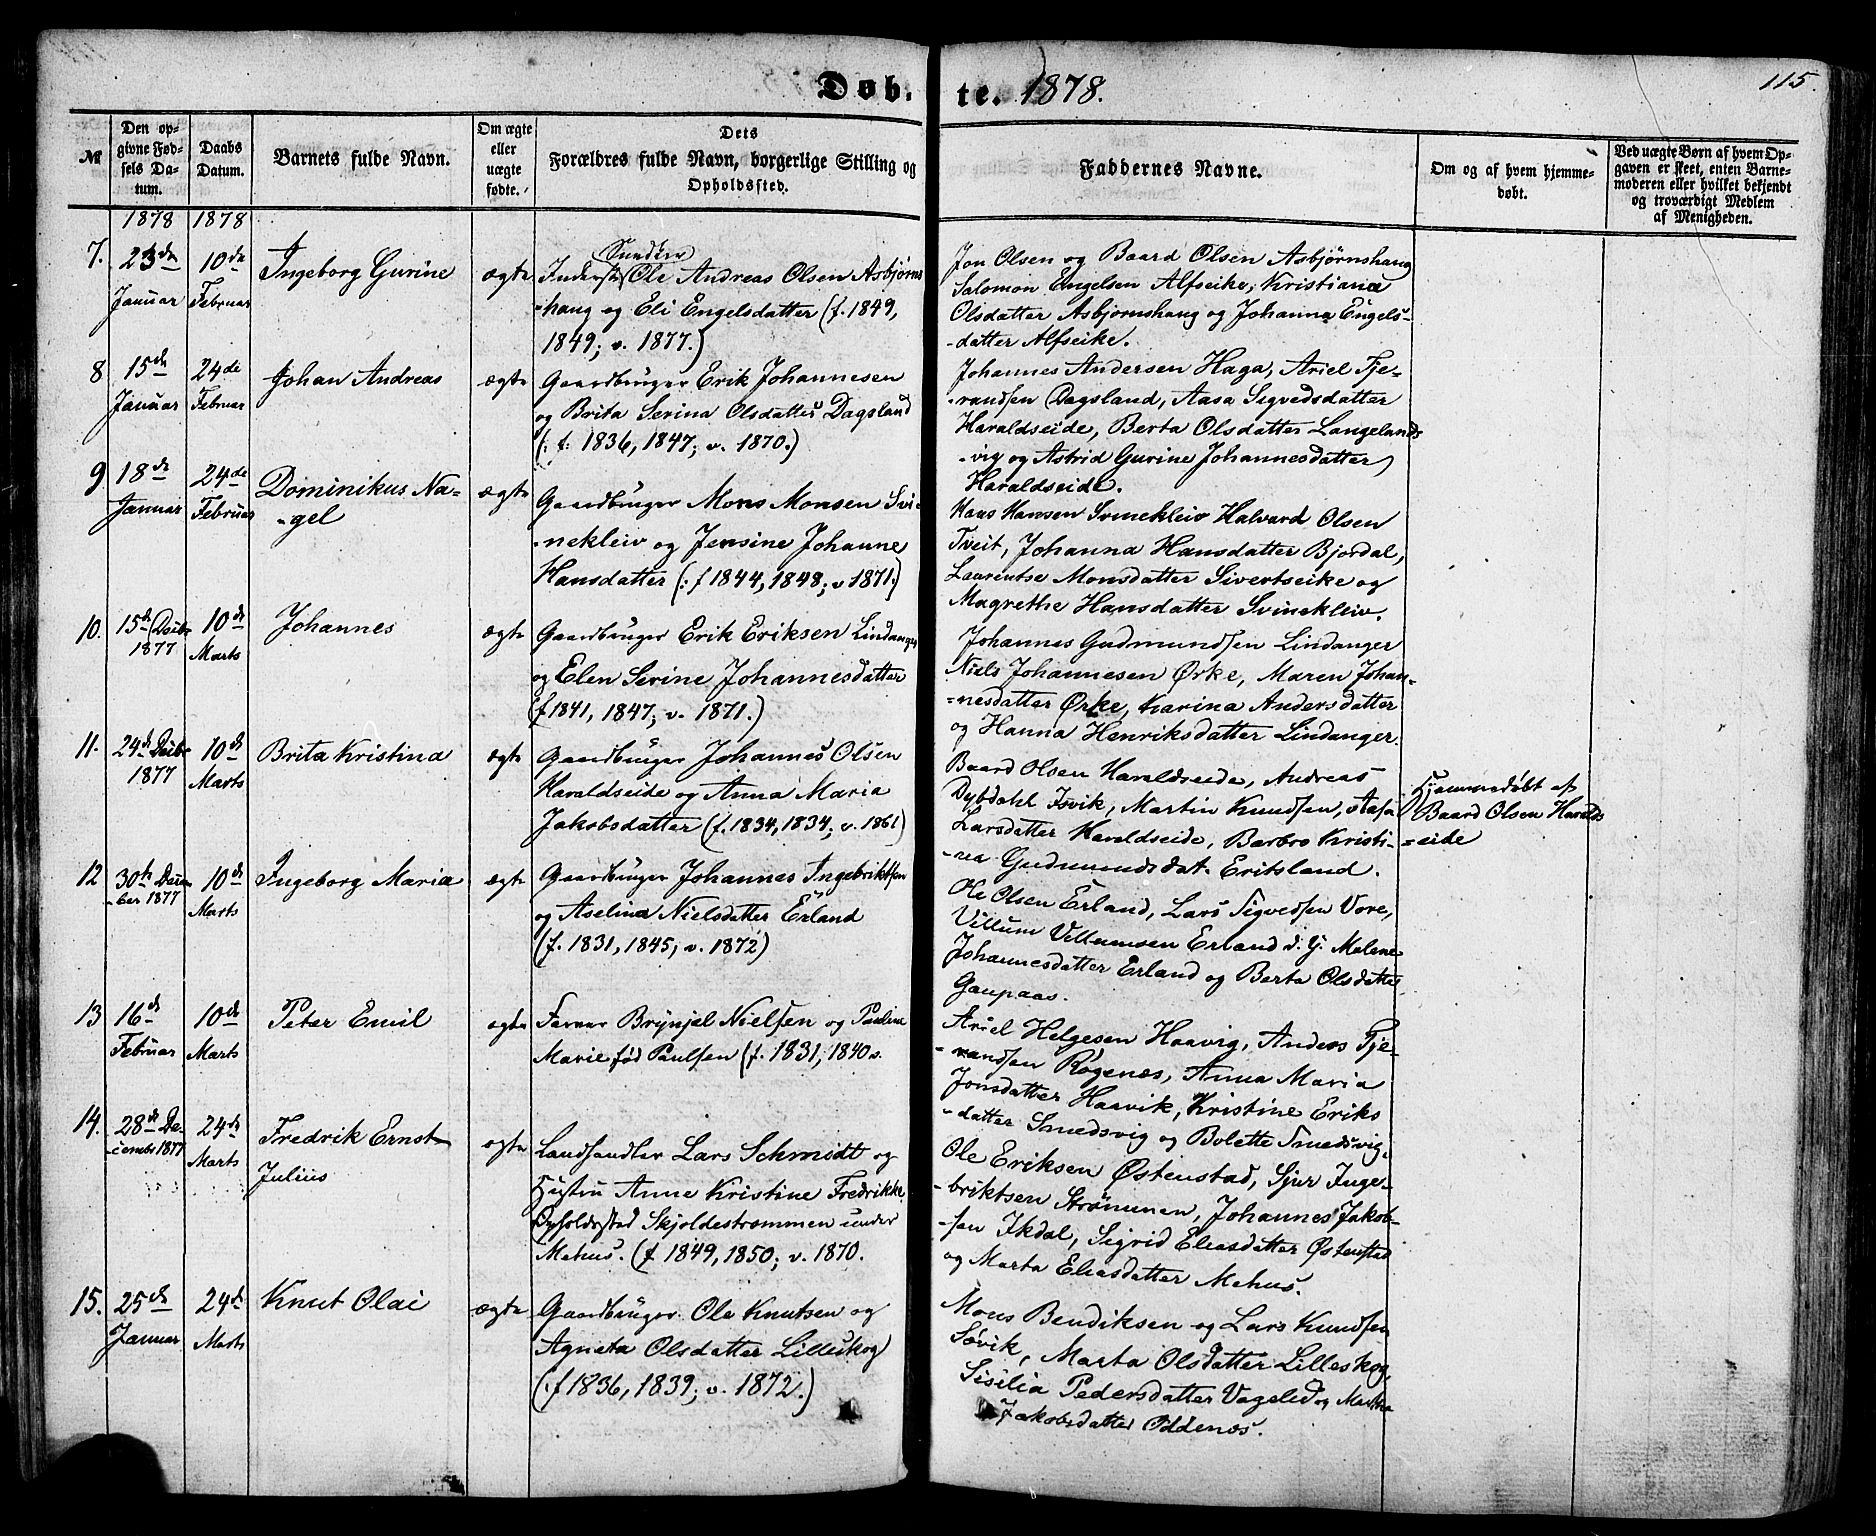 Døb. te. 1878.
115.
№
Den op-
givne Fød-
sels Da-
tum.
Daabs
Datum.
Barnets fulde Navn.
Om ægte
eller
uægte
fødte.
Dets
Forældres fulde Navn, borgerlige Stilling og
Opholdssted.
Faddernes Navne.
Om og af hvem hjemme-
døbt.
Ved uægte Børn af hvem Op-
gaven er skeet, enten Barne-
moderen eller hvilket bekjendt
og troværdigt Medlem
af Menigheden.
1878 1878
7. 23de Januar
10de Februar
Ingeborg Gurine
ægte
Inderst Ole Andreas Olsen Asbjørns
-haug og Eli Engelsdatter (f. 1849,
1849; v. 1877.)
Jon Olsen og Baard Olsen Asbjørnshaug
Salomon Engelsen Alfseike, Kristiana
Olsdatter Asbjørnshaug og Johanna Engels-
-datter Alfseike.
8 15de Januar
24de Februar
Johan Andreas
ægte
Gaardbruger Erik Johannesen
og Brita Serina Olsdatter Dagsland
(: f. 1836, 1847; v. 1870.)
Johannes Andersen Haga, Ariel Tje-
-randsen Dagsland, Aasa Sigvedsdatter
Haraldseide, Berta Olsdatter Langelands
-vig og Astrid Gurine Johannesdatter
Haraldseide.
9 18de Januar
24de Februar
Dominikus Na-
-gel
ægte
Gaardbruger Mons Monsen Svi-
-nekleiv og Jensine Johanne
Hansdatter (: f 1844, 1848; v 1871.)
Hans Hansen Svinekleiv Halvard Olsen
Tveit, Johanna Hansdatter Bjordal,
Laurentse Monsdatter Sivertseike og
Magrethe Hansdatter Svinekleiv.
10. 15de Decbr 1877
10de Marts
Johannes
ægte
Gaardbruger Erik Eriksen Lindanger
og Elen Serine Johannesdatter
(f 1841, 1847; v. 1871.)
Johannes Gudmundsen Lindanger
Niels Johannesen Ørke, Maren Johan-
-nesdatter Ørke, Karina Andersdatter
og Hanna Henriksdatter Lindanger.
11. 24de Decbr 1877
10de Marts
Brita Kristina
ægte
Gaardbruger Johannes Olsen
Haraldseide og Anna Maria
Jakobsdatter (f. 1834, 1834; v. 1861)
Baard Olsen Haraldseide, Andreas
Dybdahl Isvik, Martin Knudsen, Aasa
Larsdatter Haraldseide, Barbro Kristi-
-na Gudmundsdat. Eritsland.
Hjemmedøbt af
Baard Olsen Haralds
-eide
12 30te Decem
-ber 1877
10de Marts
Ingeborg Maria
ægte
Gaardbruger Johannes Ingebriktsen
og Aselina Nielsdatter Erland
(f. 1831, 1845; v. 1872)
Ole Olsen Erland, Lars Sigvedsen Vore,
Villum Villumsen Erland d. y. Malene
Johannesdatter Erland og Berta Olsdatter
Gaupaas.
13 16de Februar
10de Marts
Peter Emil
ægte
Farver Brynjel Nielsen og Pauline
Marie fød Paulsen (f. 1831, 1840 v.
Ariel Helgesen Haavig, Anders Tje-
-randsen Røgenes, Anna Maria
Jonsdatter Haavik, Kristine Eriks
-datter Smedsvig og Bolette Smedsvig.
14. 28de De-
-cember 1877
24de Marts
Fredrik Ernst
Julius
ægte
Landhandler Lars Schmidt og
Hustru Anne Kristine Fredrikke
Opholdssted Skjoldestrømmen under
Mehus. (f 1849, 1850; v. 1870.
Ole Eriksen Østenstad, Sjur Inge-
-briktsen Strømmen, Johannes Jakob-
-sen Ikdal, Sigrid Eliasdatter Østenstad
og Marta Eliasdatter Mehus.
15. 25de Januar
24de Marts
Knut Olai
ægte
Gaardbruger Ole Knutsen og
Agneta Olsdatter Lilleskog
(: f 1836, 1839; v. 1872.)
Mons Bendiksen og Lars Knudsen
Søvik, Marta Olsdatter Lilleskog,
Sisilia Pedersdatter Vageled og Martha
Jakobsdatter Oddenes.